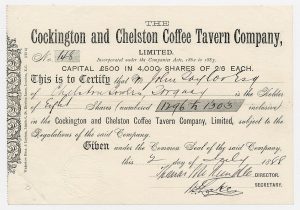 THE
Cockington and Chelston Coffee Tavern Company,
LIMITED.
Incorporated under the Companies Acts, 1862 to 1883.
No. 148
CAPITAL £500 IN 4,000 SHARES OF 2/6 EACH.
This is to Certify that Mr John Taylor Esq
of Chelston Torquay is the Holder
of Eight Shares (numbered 1296 to 1303 inclusive)
in the Cockington and Chelston Coffee Tavern Company, Limited, subject to the
Regulations of the said Company.
Given under the Common Seal of the said Company
this 2 day of July 1888
DIRECTOR.
SECRETARY.